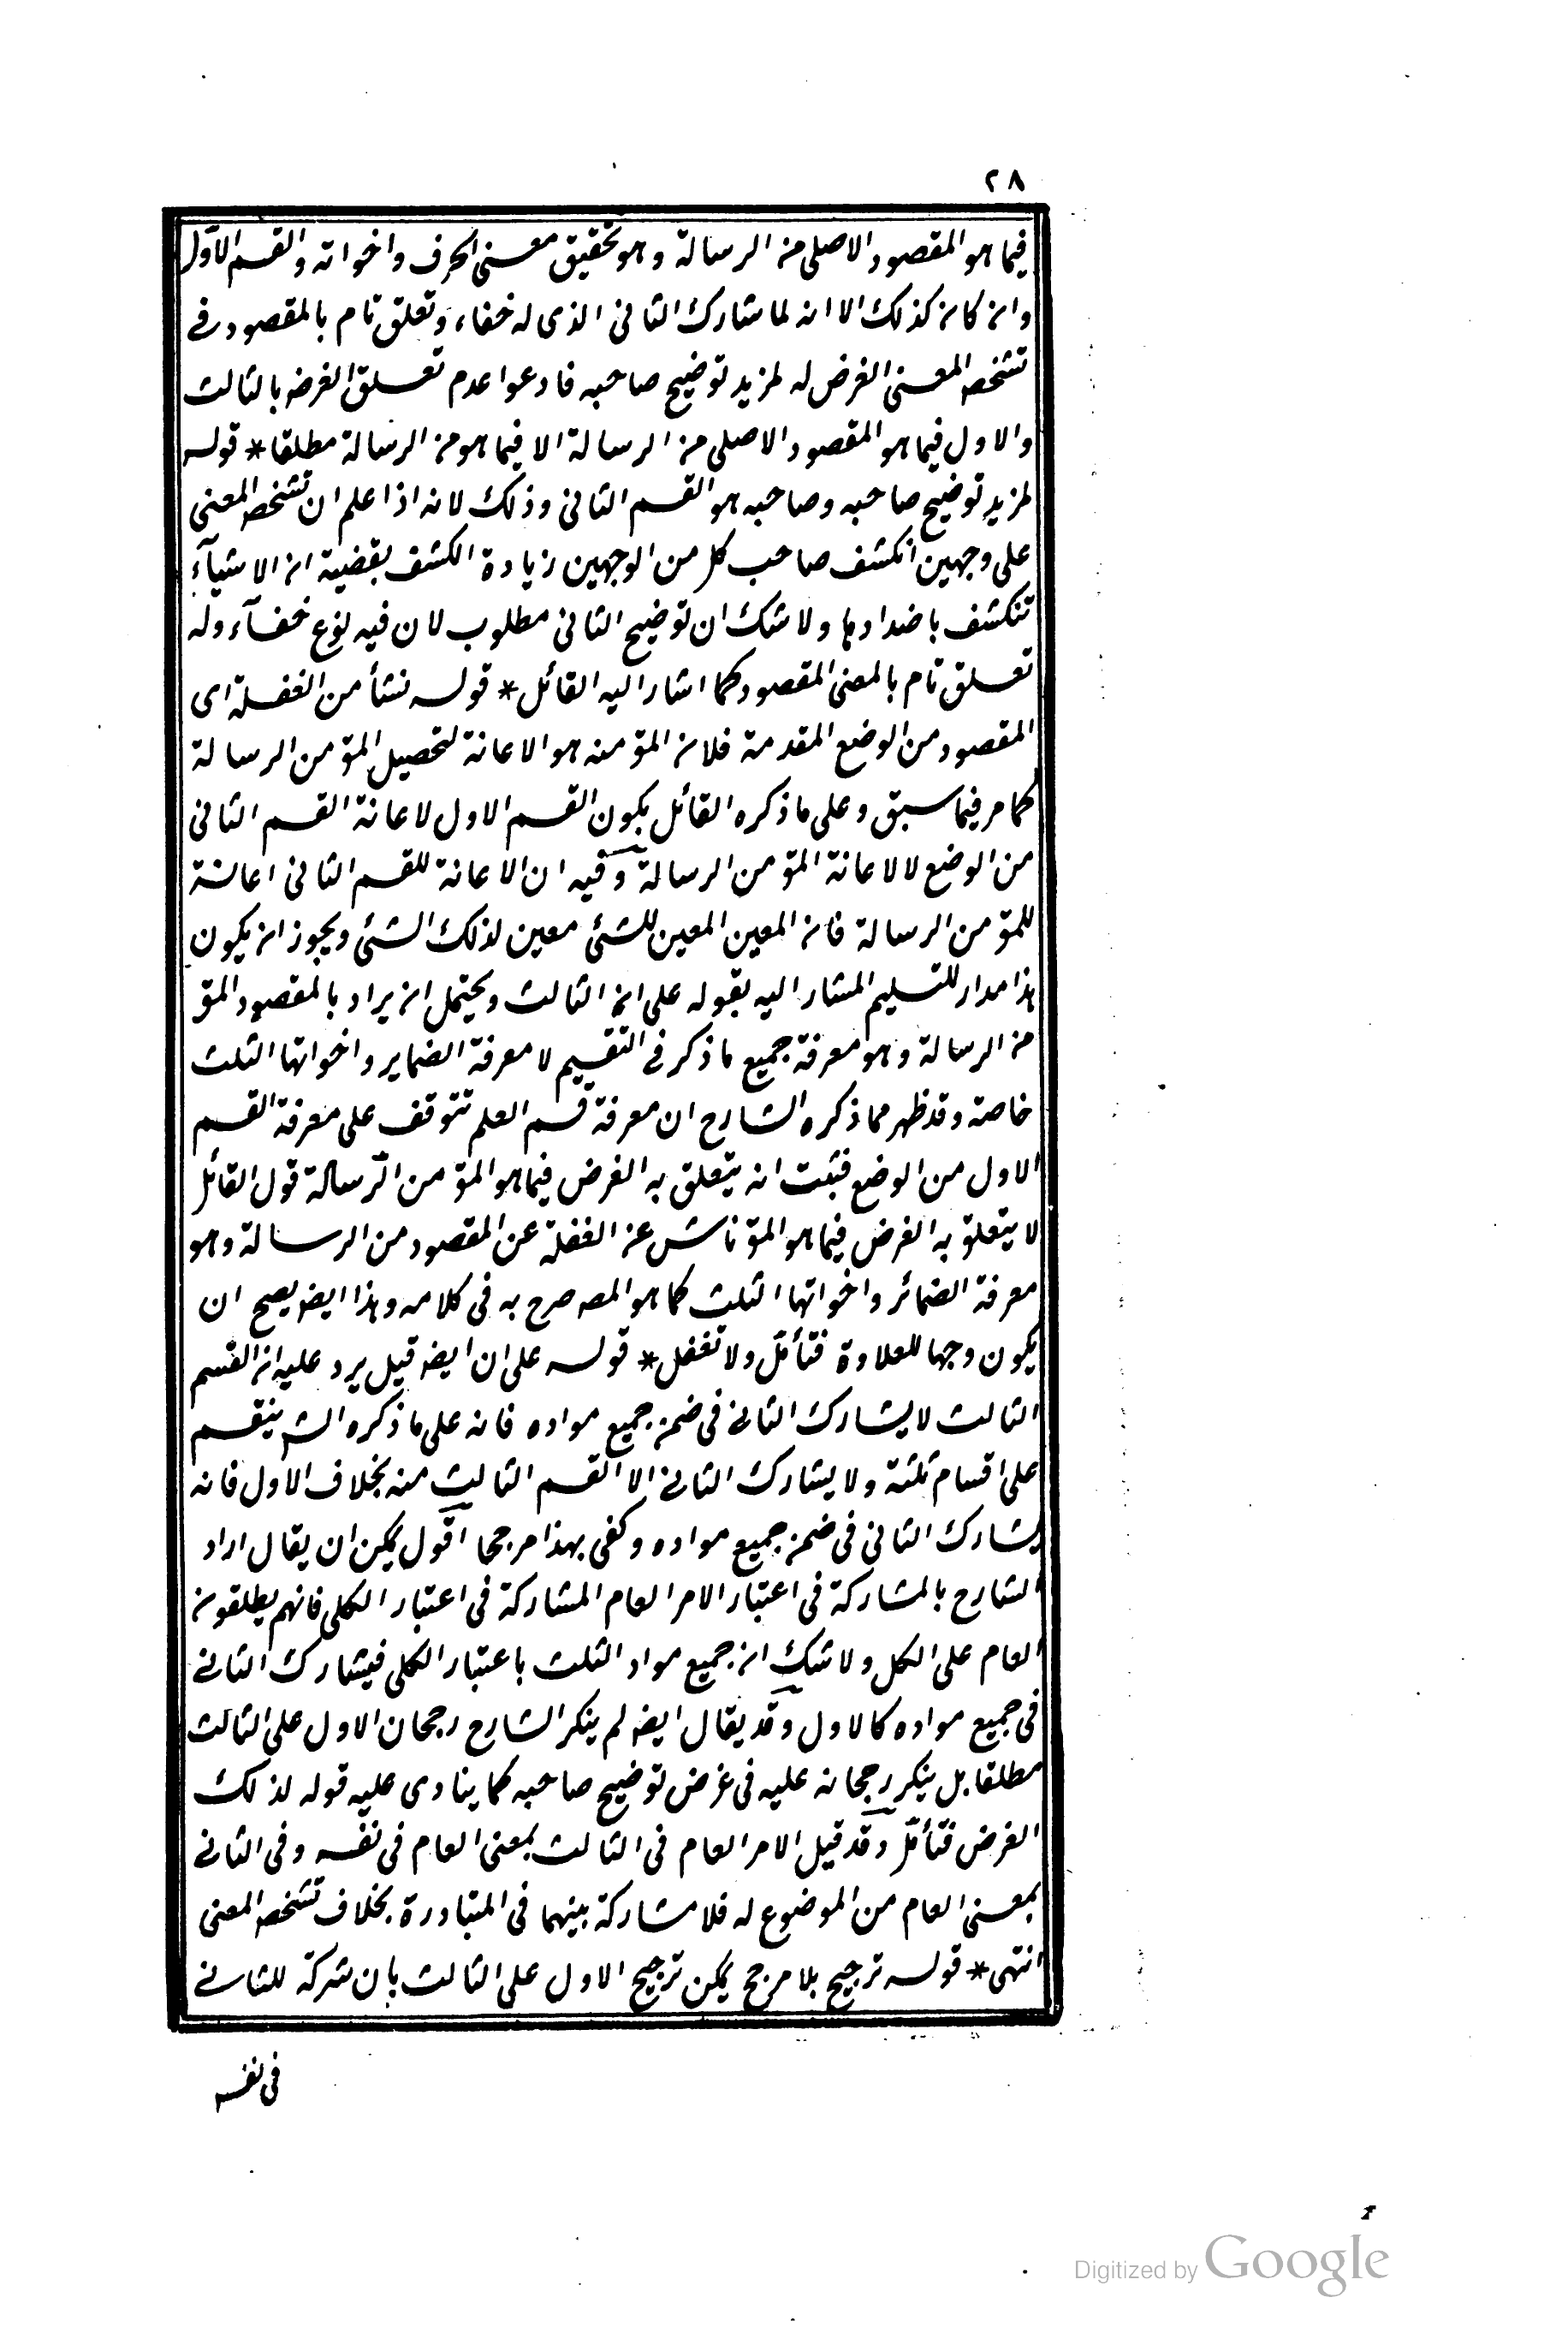 ٢٨
فيما هو المقصود الاصلى من الرسالة وهو تحقيق معنى الحرف واخواته والقسم الاول
وان كان كذلك الا انه لما شارك الثانى الذى له خفاء وتعلق تام بالمقصود فى
تشخص المعنى الغرض له لمزيد توضيح صاحبه فادعوا عدم تعلق الغرض بالثالث
والاول فيما هو المقصود الاصلى من الرسالة الا فيما هو من الرسالة مطلقا * قوله
لمزيد توضيح صاحبه وصاحبه هو القسم الثانى وذلك لانه اذا علم ان تشخص المعنى
على وجهين انكشف صاحب كل من الوجهين زيادة الكشف بقضية ان الاشياء
تنكشف باضدادها ولا شك ان توضيح الثانى مطلوب لان فيه نوع خفآء وله
تعلق تام بالمعنى المقصود كما اشار اليه القائل * قوله نشأ من الغفلة اى
المقصود من الوضع المقدمة فلان المقو منه هو الاعانة لتحصيل المقو من الرسالة
كما مر فيما سبق وعلى ما ذكره القائل يكون القسم الاول لاعانة القسم الثانى
من الوضع لا لاعانة المقو من الرسالة وفيه ان الاعانة للقسم الثانى اعانة
للمقو من الرسالة فان المعين المعين للشئ معين لذلك الشئ ويجوز ان يكون
هذا مدار للتسليم المشار اليه بقوله على ان الثالث ويحتمل ان يراد بالمقصود المقو
من الرسالة وهو معرفة جميع ما ذكر فى التقسيم لا معرفة الضماير واخواتها الثلث
خاصة وقد ظهر مما ذكره الشارح ان معرفة قسم العلم تتوقف على معرفة القسم
الاول من الوضع فثبت انه يتعلق به الغرض فيما هو المقو من الرسالة قول القائل
لا يتعلق به الغرض فيما هو المقو ناش عن الغفلة عن المقصود من الرسالة وهو
معرفة الضمائر واخواتها الثلث كما هو المصه صرح به فى كلامه وهذا ايضه يصح ان
يكون وجها للعلاوة فتأمل ولا تغفل * قوله على ان ايضه قيل يرد عليه ان القسم
الثالث لا يشارك الثانى فى ضمن جميع مواده فانه على ما ذكره الشه ينقسم
على اقسام ثلثة ولا يشارك الثانى الا القسم الثالث منه بخلاف الاول فانه
يشارك الثانى فى ضمن جميع مواده وكفى بهذا مرجحا اقول يمكن ان يقال اراد
الشارح بالمشاركة فى اعتبار الامر العام المشاركة فى اعتبار الكلى فانهم يطلقون
العام على الكل ولا شك ان جميع مواد الثلث باعتبار الكلى فيشارك الثانى
فى جميع مواده كالاول وقد يقال ايضه لم ينكر الشارح رجحان الاول على الثالث
مطلقا بل ينكر رجحانه عليه فى غرض توضيح صاحبه كما ينادى عليه قوله لذلك
الغرض فتأمل وقد قيل الامر العام فى الثالث بمعنى العام فى نفسه وفى الثانى
بمعنى العام من الموضوع له فلا مشاركة بينهما فى المتبادرة بخلاف تشخص المعنى
انتهى * قوله ترجيح بلا مرجح يمكن ترجيح الاول على الثالث بان شركة للثانى
فى نفسه
Digitized by Google